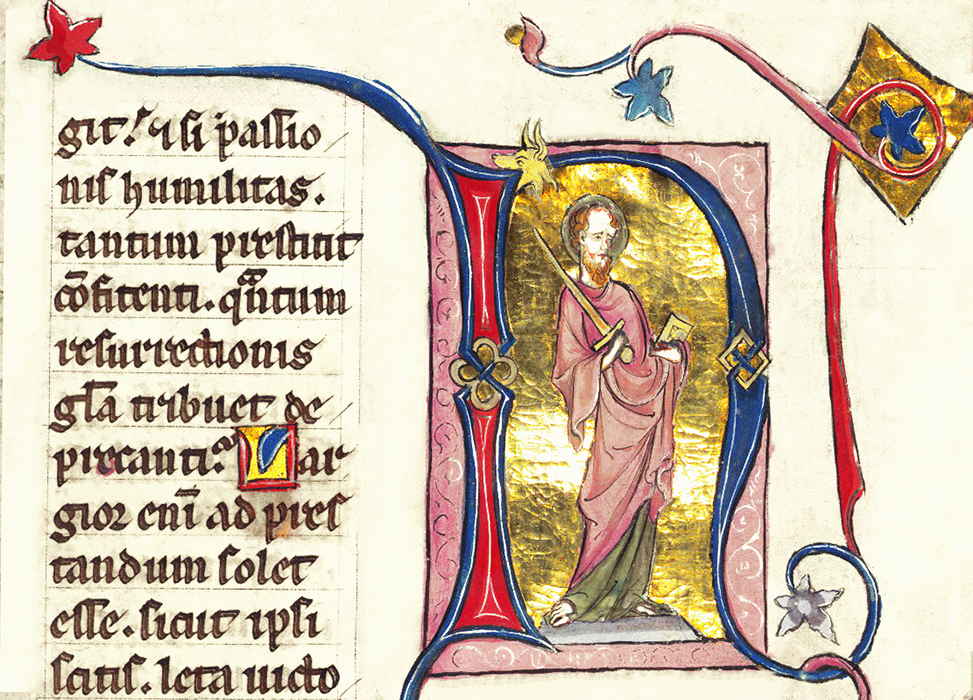 git. ⁊ si passio
nis humilitas.
tantum prestitit
cōfitenti. qͣntum
resurrectionis
gl̄a tribuet de
precanti. Lar
gior enī ad pres
tandum solet
esse. sicut ipsi
scitis. leta uicto
N